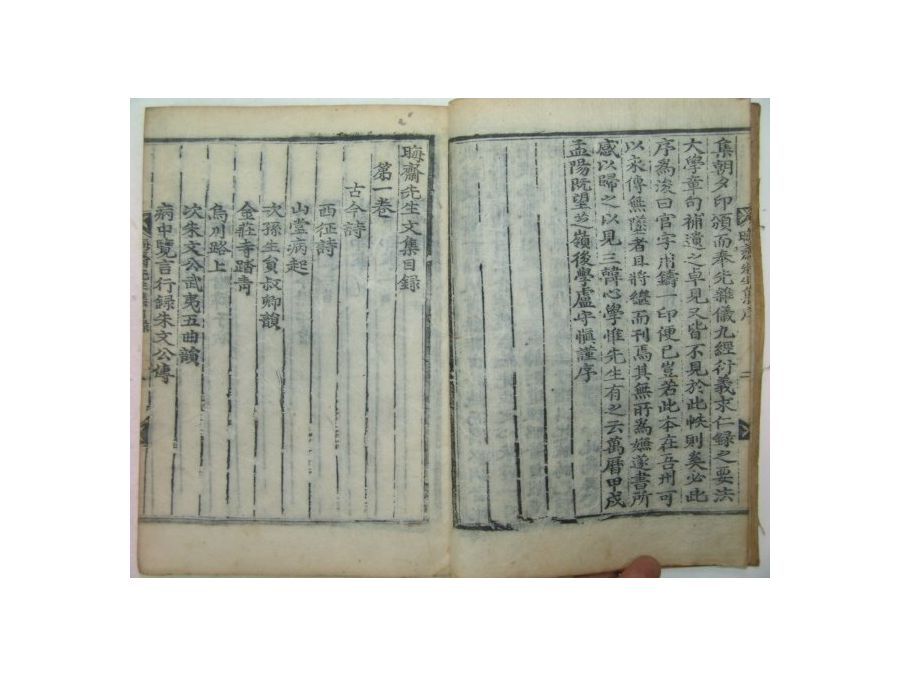 集朝夕印頒而奉先雜儀九經衍義求仁錄之要法
大學章句補遺之卓見又皆不見於此帙則奚必此
序為浚曰官字用鑄一印便已豈若此本在吾州可
以永傳無墜者且將繼而刊焉其無所為嫌遂書所
感以歸之以見三韓心學惟先生有之云萬曆甲戌
孟陽既望後學盧守愼謹序
晦齋先生集序
二
晦齋先生文集目錄
第一卷
古今詩
西征詩
山堂病起
次孫生貟叔卿韻
金莊寺踏青
烏川路上
次朱文公武夷五曲韻
病中覽言行録朱文公傳